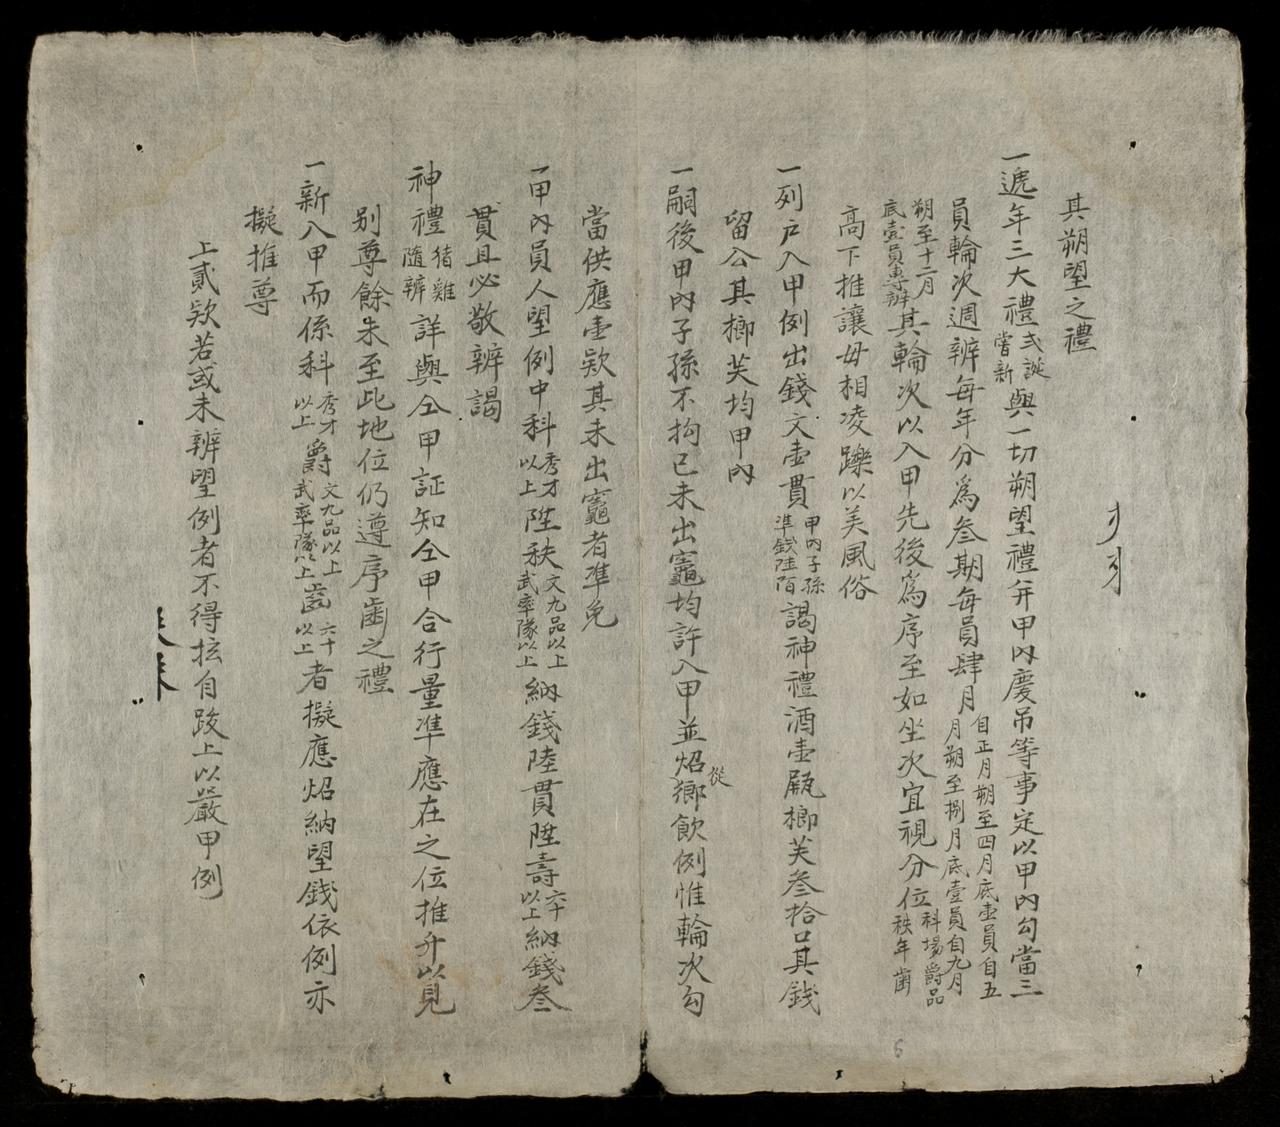 其朔望之禮
一遞年三大禮弍誕嘗新與一切朔望禮并甲內慶吊等事定以甲內勾當三
員輪次週辨每年分為叁期每員肆月自正月朔至四月底壹員自五月朔至捌月底壹員自九月
朔至十二月底壹員專辨其輪次以入甲先後為序至如坐次宜視分位科場爵品秩年齒
高下推讓毋相凌躒以美風俗
一列户入甲例出錢文壹貫甲內子孫準錢陸陌謁神禮酒壹瓻榔芙叁拾口其錢
留公其榔芙均甲內
一嗣後甲內子孫不拘已未出竈均許入甲並炤從鄉飲例惟輪次勾
當供應壹欵其未出竈者準免
一甲內員人望例中科秀才以上陞秩文九品以上武率隊以上納錢陸貫陞壽六十以上納錢叁
貫且必敬辨謁
神禮猪雞隨辨詳與仝甲証知仝甲合行量準應在之位推升以見
別尊餘未至此地位仍遵序齒之禮
一新入甲而係科秀才以上爵文九品以上武率隊以上齒六十以上者擬應炤納望錢依例亦
擬推尊
上貳欵若或未辨望例者不得抎自跂上以嚴甲例